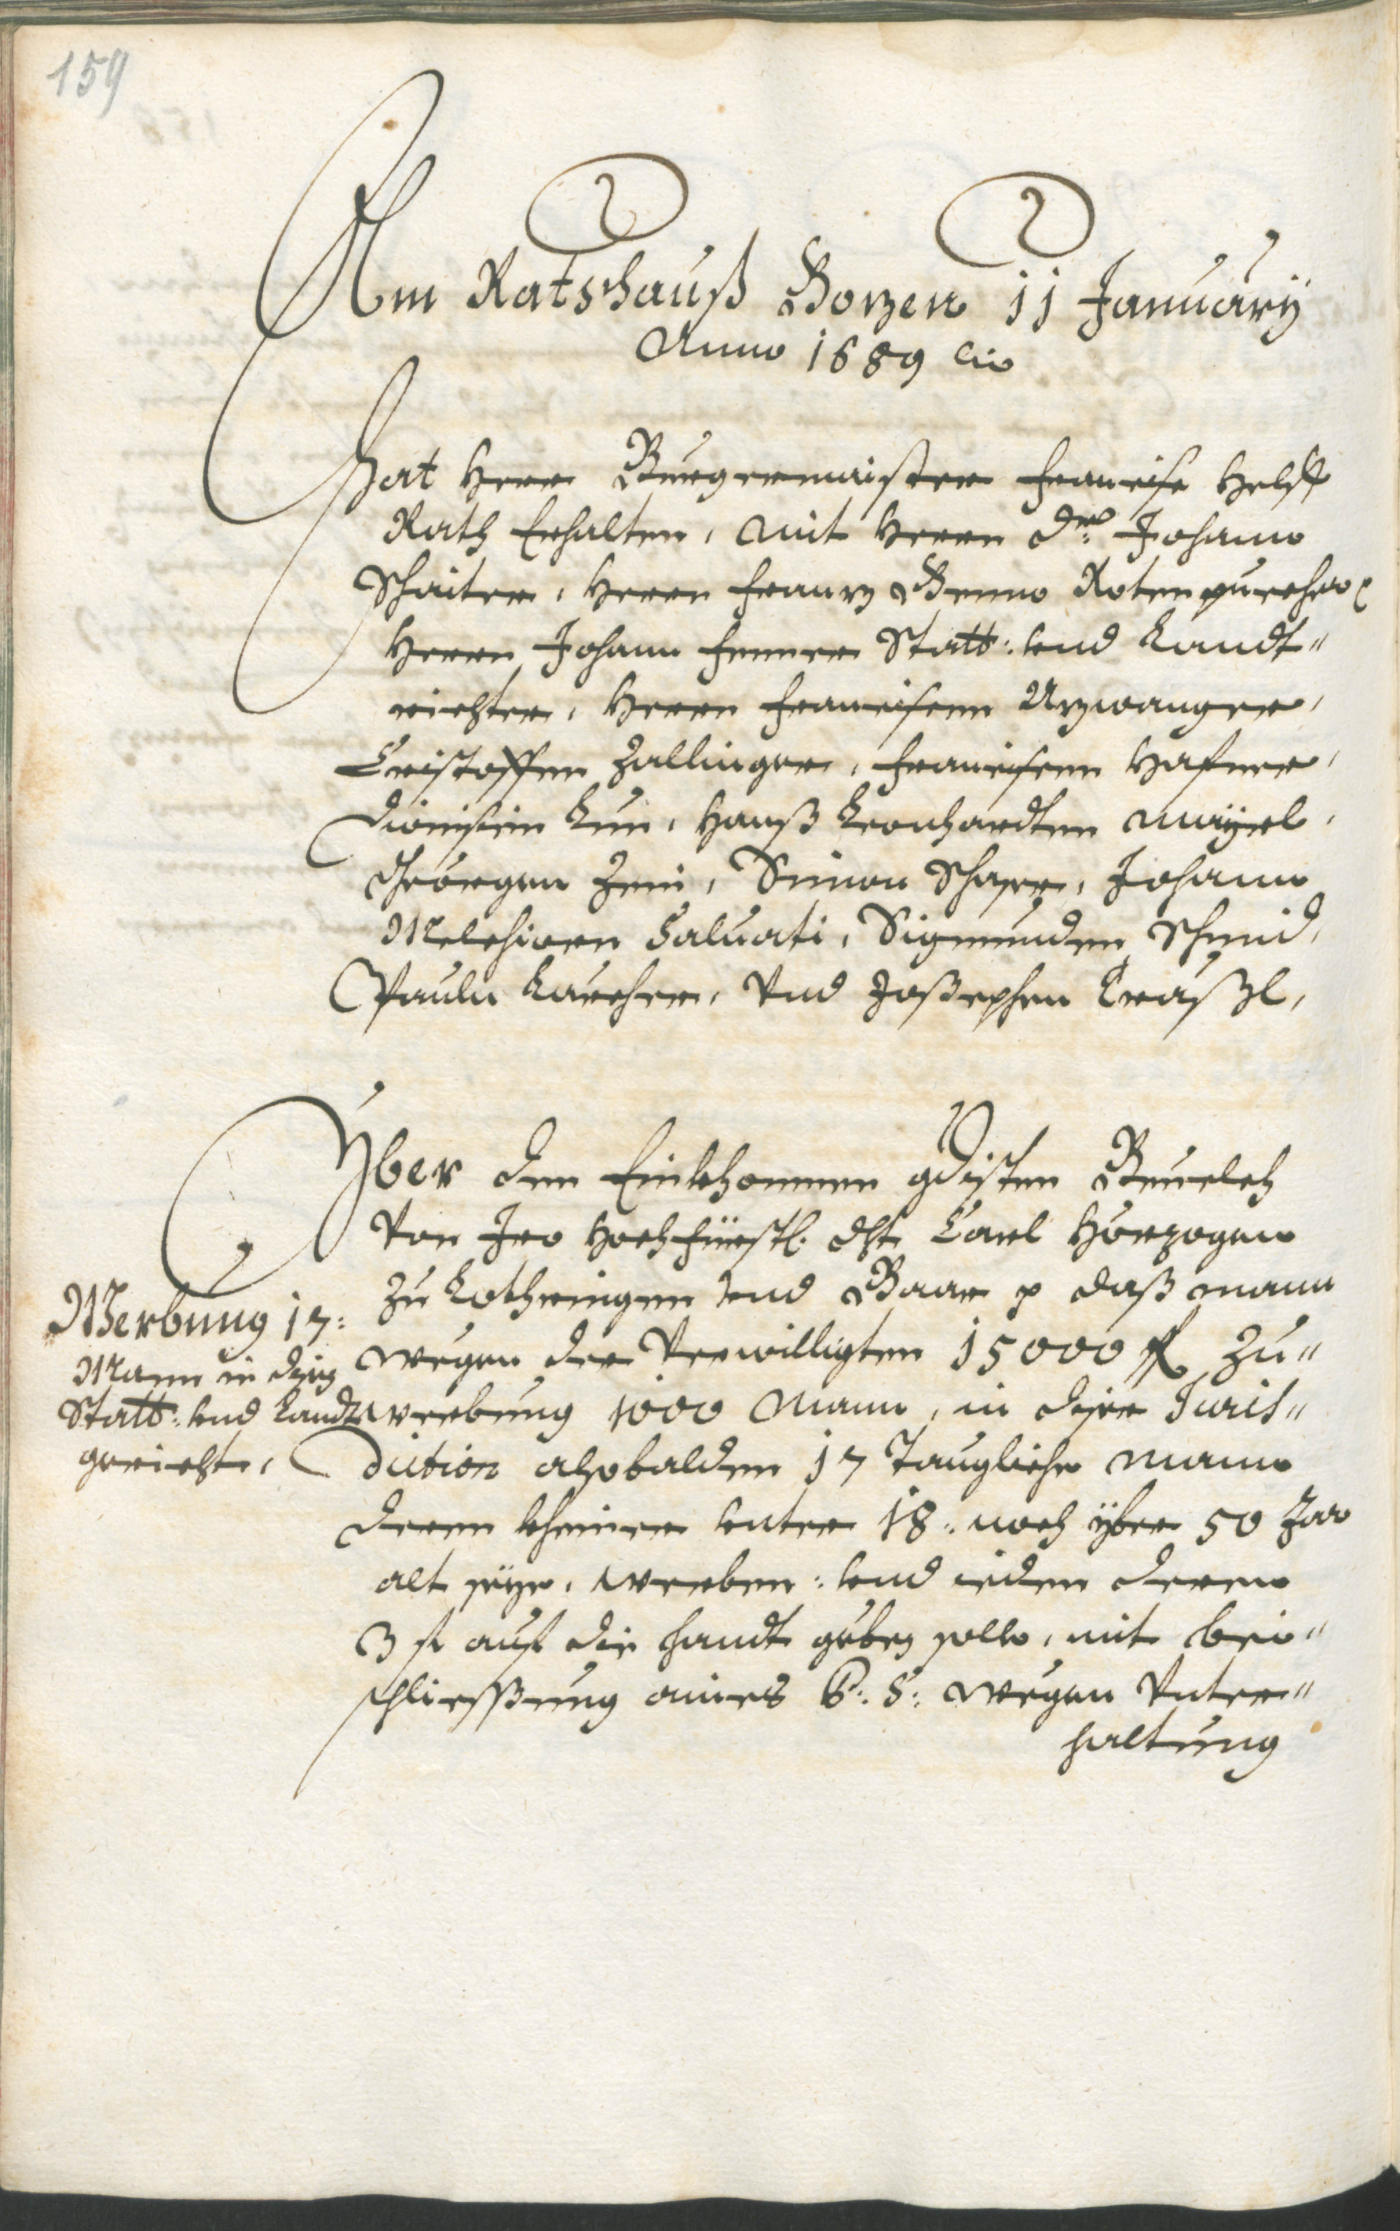 159
Am Ratshauß Bozen 11 January
Anno 1689
Hat Herr Burgermaister Francisc Helff
Rath Erhalten, mit Herrn Dr. Johann
Schaiter, Herrn Franz Benno Rotenpurcher
Herrn Johann Fenner Statt: und Landt"
richter, Herrn Franciscen Azwanger,
Cristoffen Zallinger, Franciscen Hafner,
Dionisien Kun, Hanß Leonhardten Mayrl,
Geörgen Zeni, Simon Schaser, Johann
Melchiorn Saluati, Sigmunden Schmid,
Pauln Karcher, Vnd Joßephen Kraußl,
Yber den Einkhomnen gdisten Beuelch
Von Iro Hochfürstl. dht Carl Hörzogen
zu Lothringen und Baar p daß mann
wegen der Verwilligten 15000 fl zu"
werbung 1000 Mann, in diser Juris"
diction alsobalden 17 Taugliche Mann
deren kheiner unter 18: noch yber 50 Jar
alt seye, werben: und ieden deren
3 fl auf die handt geben solle, mit bei"
schliessung aines P: S: wegen Vnter"
haltung
Werbung 17:
Mann in diser
Statt: und Landt
gericht,